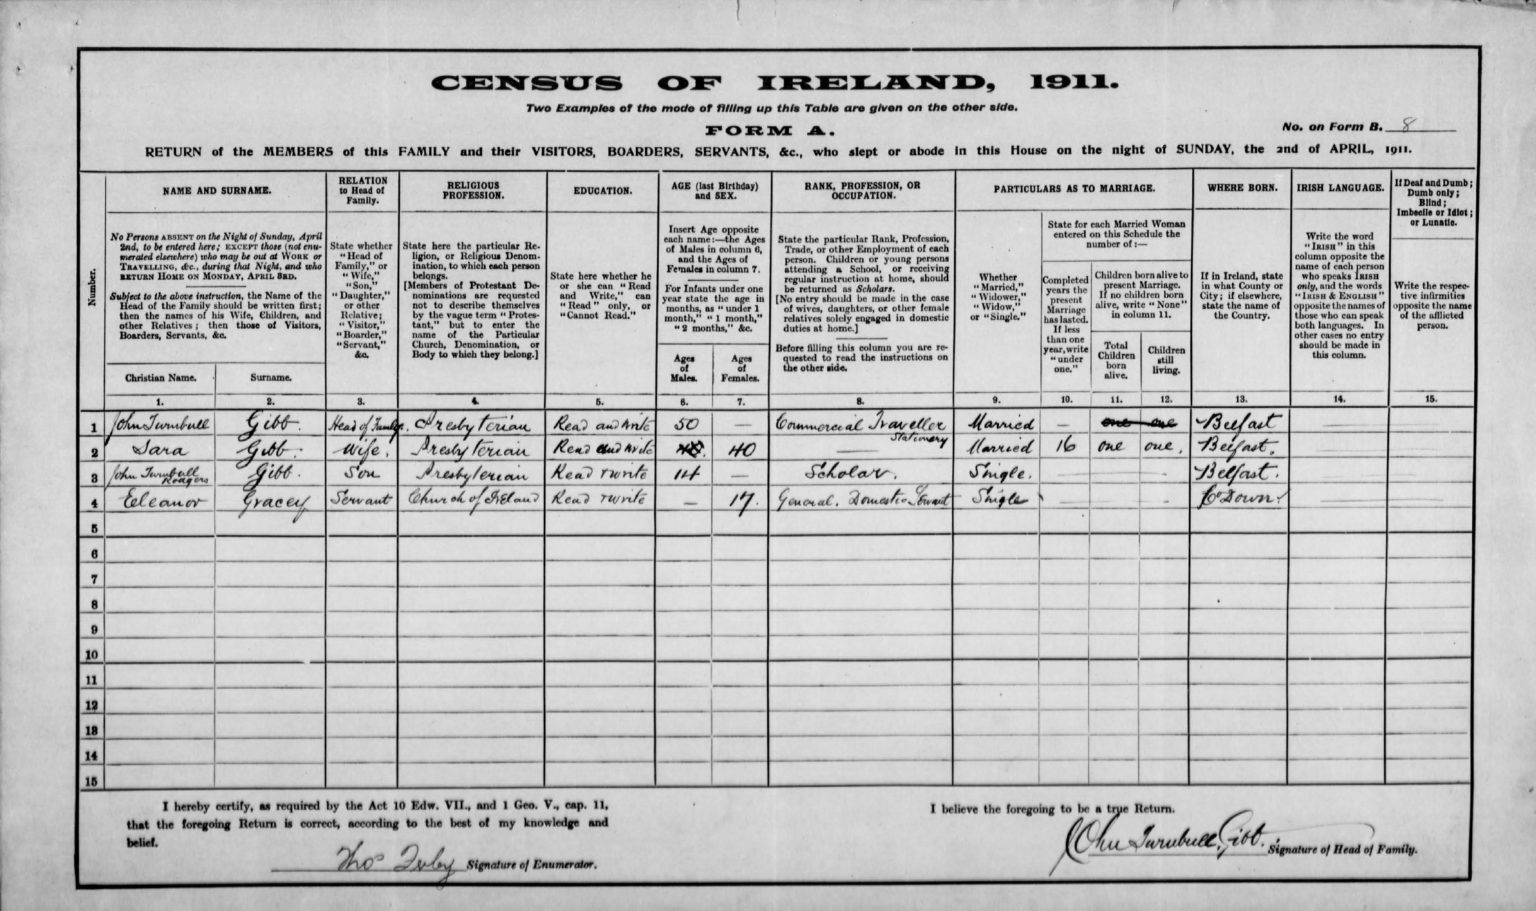 CENSUS OF IRELAND, 1911.
Two Examples of the mode of filling up this Table are given on the other side.
FORM A.
No. on Form B. 8
RETURN of the MEMBERS of this FAMILY and their VISITORS, BOARDERS, SERVANTS, &c., who slept or abode in this House on the night of SUNDAY, the 2nd of APRIL, 1911.
Number.
NAME AND SURNAME.
No Persons ABSENT on the Night of Sunday, April
2nd, to be entered here; EXCEPT those (not enu-
merated elsewhere) who may be out at WORK or
TRAVELLING, &c., during that Night, and who
RETURN HOME ON MONDAY, APRIL 3RD.
Subject to the above instruction, the Name of the
Head of the Family should be written first;
then the names of his Wife, Children, and
other Relatives; then those of Visitors,
Boarders, Servants, &c.
Christian Name.
Surname.
RELATION
to Head of
Family.
State whether
"Head of
Family," or
"Wife,"
"Son,"
"Daughter,"
or other
Relative;
"Visitor,"
"Boarder,"
"Servant,"
&c.
RELIGIOUS
PROFESSION.
State here the particular Re-
ligion, or Religious Denom-
ination, to which each person
belongs.
[Members of Protestant De-
nominations are requested
not to describe themselves
by the vague term "Protes-
tant," but to enter the
name of the Particular
Church, Denomination, or
Body to which they belong.]
EDUCATION.
State here whether he
or she can "Read
and Write," can
"Read" only, or
"Cannot Read."
AGE (last Birthday)
and SEX.
Insert Age opposite
each name:—the Ages
of Males in column 6,
and the Ages of
Females in column 7.
For Infants under one
year state the age in
months, as "under 1
month," "1 month,"
"2 months," &c.
Ages
of
Males.
Ages
of
Females.
RANK, PROFESSION, OR
OCCUPATION.
State the particular Rank, Profession,
Trade, or other Employment of each
person. Children or young persons
attending a School, or receiving
regular instruction at home, should
be returned as Scholars.
[No entry should be made in the case
of wives, daughters, or other female
relatives solely engaged in domestic
duties at home.]
Before filling this column you are re-
quested to read the instructions on
the other side.
PARTICULARS AS TO MARRIAGE.
Whether
"Married,"
"Widower,"
"Widow,"
or "Single."
State for each Married Woman
entered on this Schedule the
number of:—
Completed
years the
present
Marriage
has lasted.
If less
than one
year, write
"under
one."
Children born alive to
present Marriage.
If no children born
alive, write "None"
in column 11.
Total
Children
born
alive.
Children
still
living.
WHERE BORN.
If in Ireland, state
in what County or
City; if elsewhere,
state the name of
the Country.
IRISH LANGUAGE.
Write the word
"IRISH" in this
column opposite the
name of each person
who speaks IRISH
only, and the words
"IRISH & ENGLISH"
opposite the names of
those who can speak
both languages. In
other cases no entry
should be made in
this column.
If Deaf and Dumb;
Dumb only;
Blind;
Imbecile or Idiot;
or Lunatic.
Write the respec-
tive infirmities
opposite the name
of the afflicted
person.
1. 2. 3. 4. 5. 6. 7. 8. 9. 10. 11. 12. 13. 14. 15.
1 John Turnbull Gibb. Head of Family. Presbyterian Read and write 50 — Commercial Traveller Stationery Married — one one Belfast
2 Sara Gibb. Wife. Presbyterian Read and write 40 — Married 16 one one. Belfast.
3 John Turnbull Rodgers Gibb. Son Presbyterian Read & write 14 — Scholar. Single. Belfast.
4 Eleanor Gracey Servant Church of Ireland Read & write — 17. General. Domestic Servant Single Co Down.
5
6
7
8
9
10
11
12
13
14
15
I hereby certify, as required by the Act 10 Edw. VII., and 1 Geo. V., cap. 11,
that the foregoing Return is correct, according to the best of my knowledge and
belief.
Thos Signature of Enumerator.
I believe the foregoing to be a true Return.
John Turnbull Gibb. Signature of Head of Family.